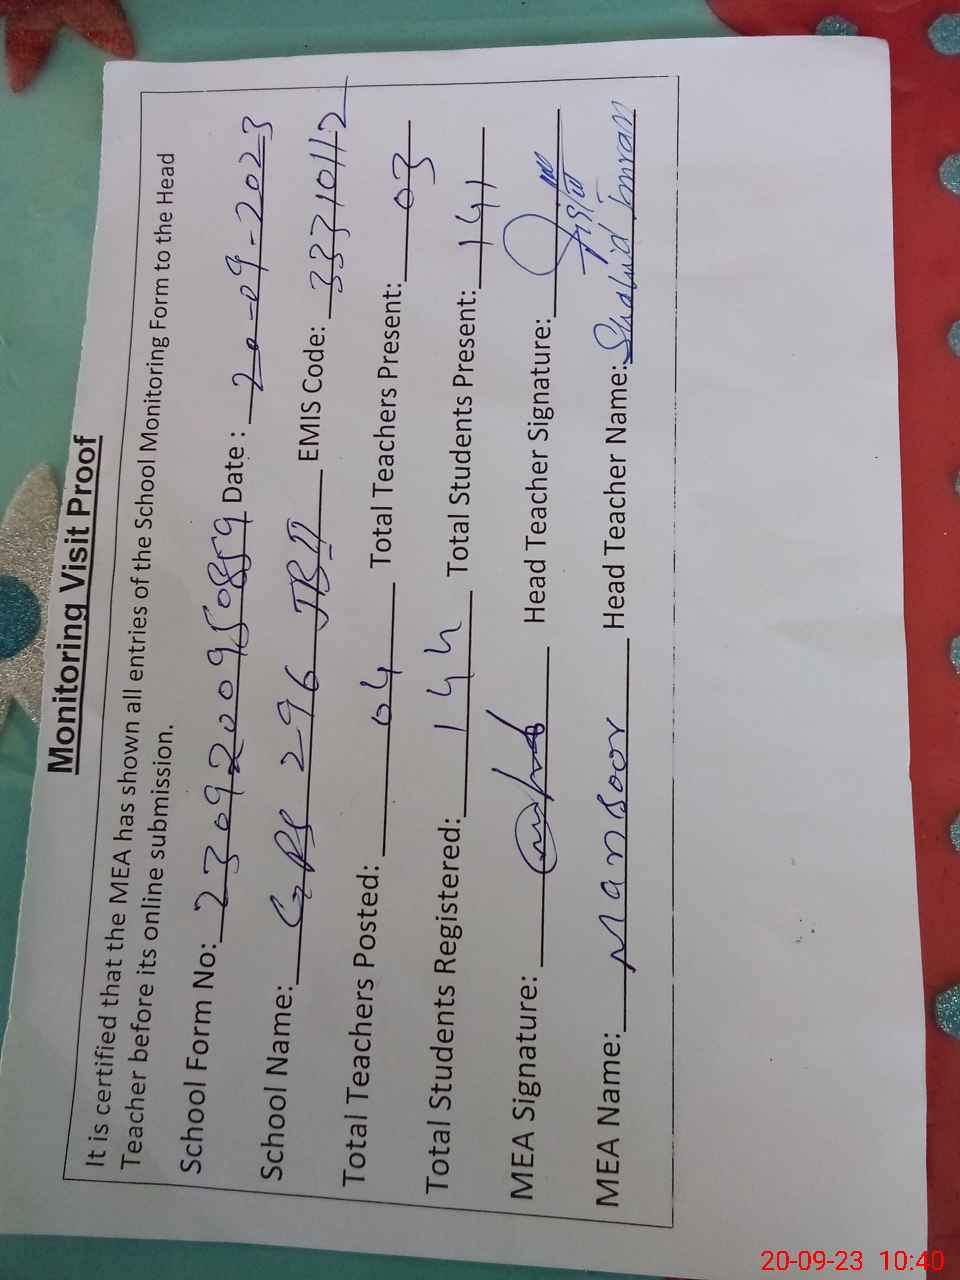 Monitoring Visit Proof
It is certified that the MEA has shown all entries of the School Monitoring Form to the Head
Teacher before its online submission.
School Form No: 2309200950859 Date : 20-09-2023
School Name: GPS 296 JB II EMIS Code: 33210112
Total Teachers Posted: 04 Total Teachers Present: 03
Total Students Registered: 144 Total Students Present: 141
MEA Signature: Head Teacher Signature:
MEA Name: Mansoor Head Teacher Name: Shahid Imran
20-09-23 10:40